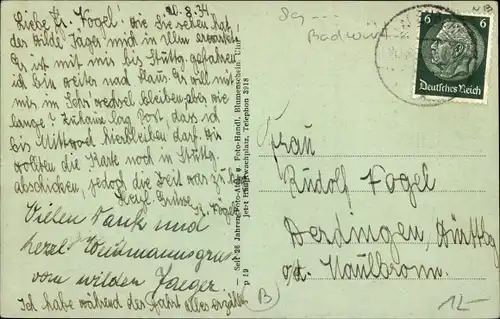 20.8.34
Liebe Fr. Vogel! Wie Sie sehen hat
der wilde Jäger mich in Ulm erwartet.
Es ist mit mir bis Stuttg. gefahren
ich bin weiter nach Haus. Er will mit
mir im Schriftwechsel bleiben aber wie
lange? Zuhause lag Post, dass ich
bis Mittwoch hierbleiben darf. Wir
wollten die Karte noch in Stuttg.
abschicken, jedoch die Zeit war zu
Herzl. Grüsse
Vielen Dank und
herzl. Weidmannsgruss
vom wilden Jaeger.
Ich habe während der Fahrt alles erzählt
Seit 26 Jahren Foto-Atelier u. Foto-Handl. Blumenschein, Ulm
jetzt Hauptwachplatz, Telephon 3918
p 19
6 6
Deutsches Reich
Frau
Rudolf Vogel
Derdingen, Württbg
o/a. Maulbronn.
B
12.-